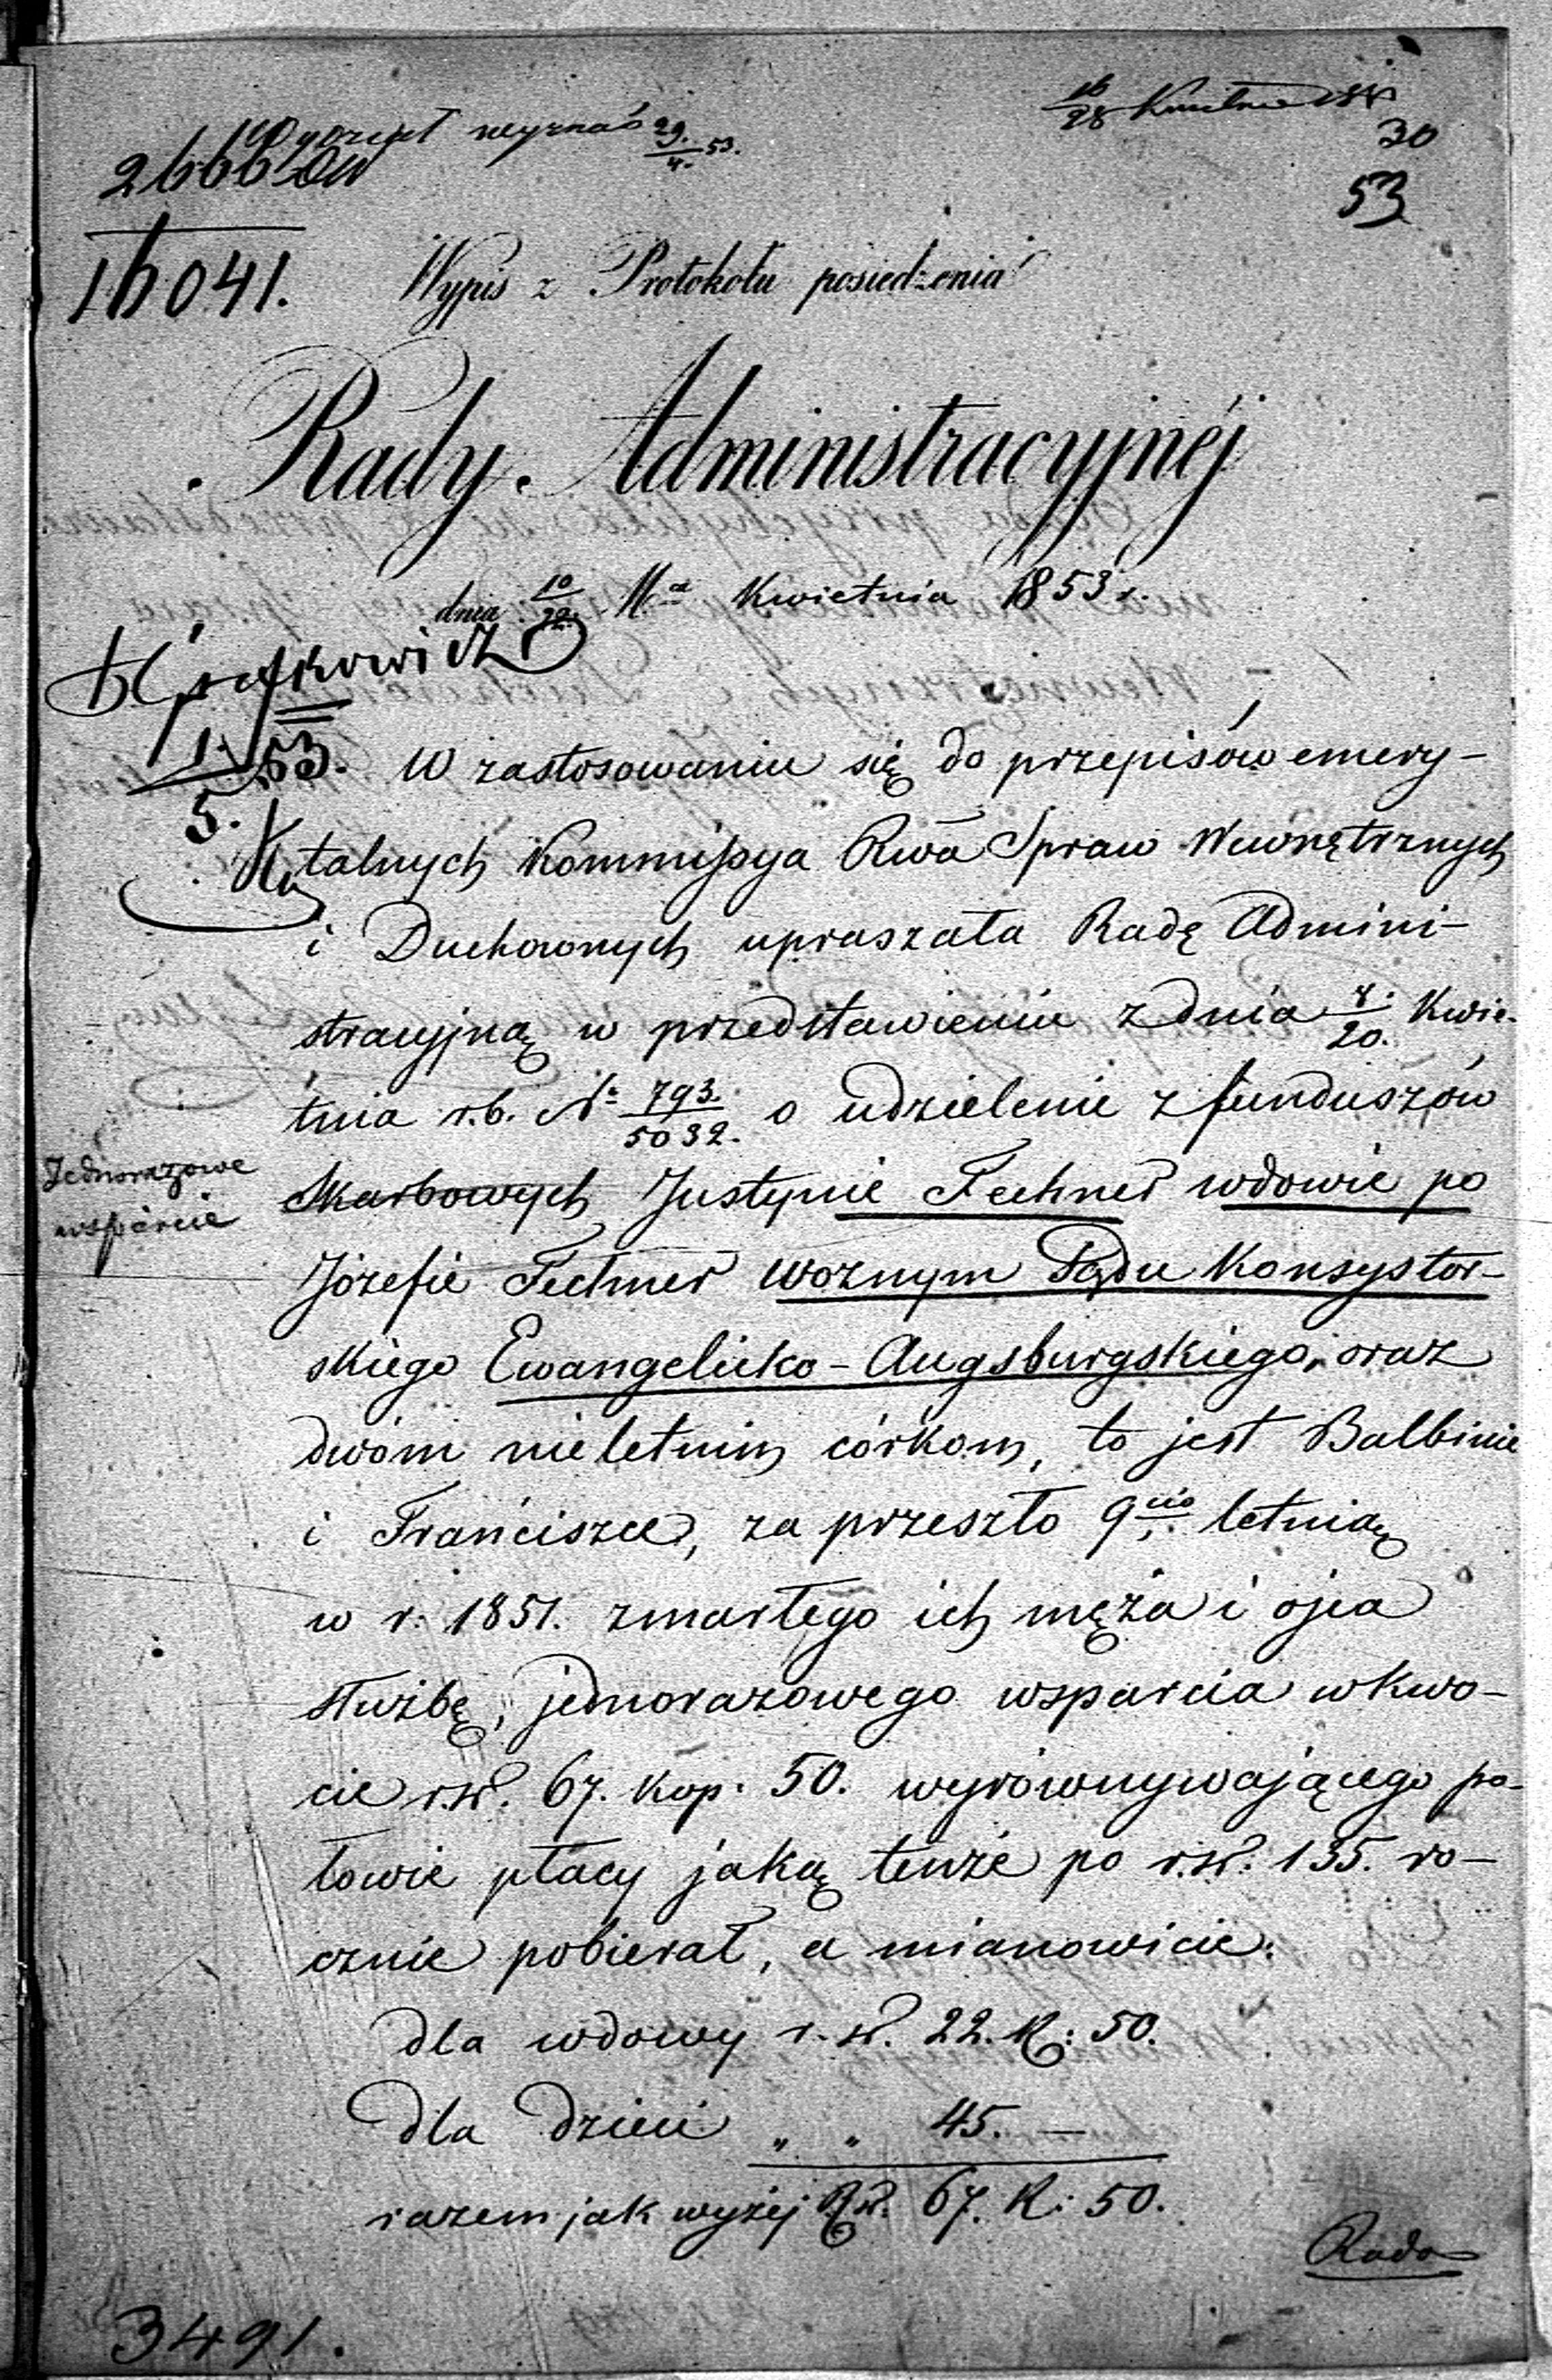 16/28 Kwietnia 185
29./4. 53.
30
2666
53
16041.
Wypis z Protokołu posiedzenia
Rady Administracyjnéj
dnia 10/22 Mca Kwietnia 1853 r.
1./5. 53.
W zastosowaniu się do przepisów emery-
talnych Kommissya Rwa Spraw Wewnętrznych
i Duchownych upraszała Radę Admini-
stracyjną w przedstawieniu z dnia 8./20. Kwie-
tnia r.b. Nr 793./5032. o udzielenie z funduszów
Jednorazowe
wsparcie
Skarbowych Justynie Fechner wdowie po
Józefie Fechner woznym Sądu Konsystor-
skiego Ewangelicko-Augsburgskiego, oraz
dwóm nieletnim córkom, to jest Balbinie
i Franciszce, za przeszło 9cio letnią
w r. 1851. zmarłego ich męża i ojca
służbę, jednorazowego wsparcia w kwo-
cie r.sr. 67. kop. 50. wyrównywającego po-
łowie płacy jaką tenże po r.sr. 135. ro-
cznie pobierał, a mianowicie:
dla wdowy r.sr. 22. k: 50.
dla dzieci „ „ 45. —
razem jak wyżej Rsr. 67. k: 50.
Rada
3491.